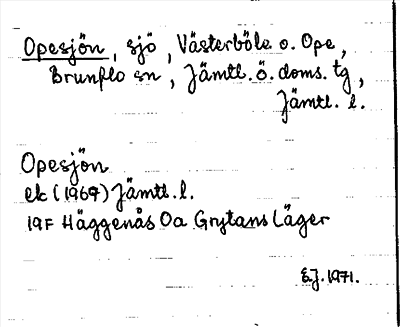 Opesjön, sjö, Västerböle o. Ope,
Brunflo sn, Jämtl. ö. doms. tg,
Jämtl. l.
Opesjön
ek (1969) Jämtl. l.
19F Häggenås Oa Grytans Läger
E.J. 1971.